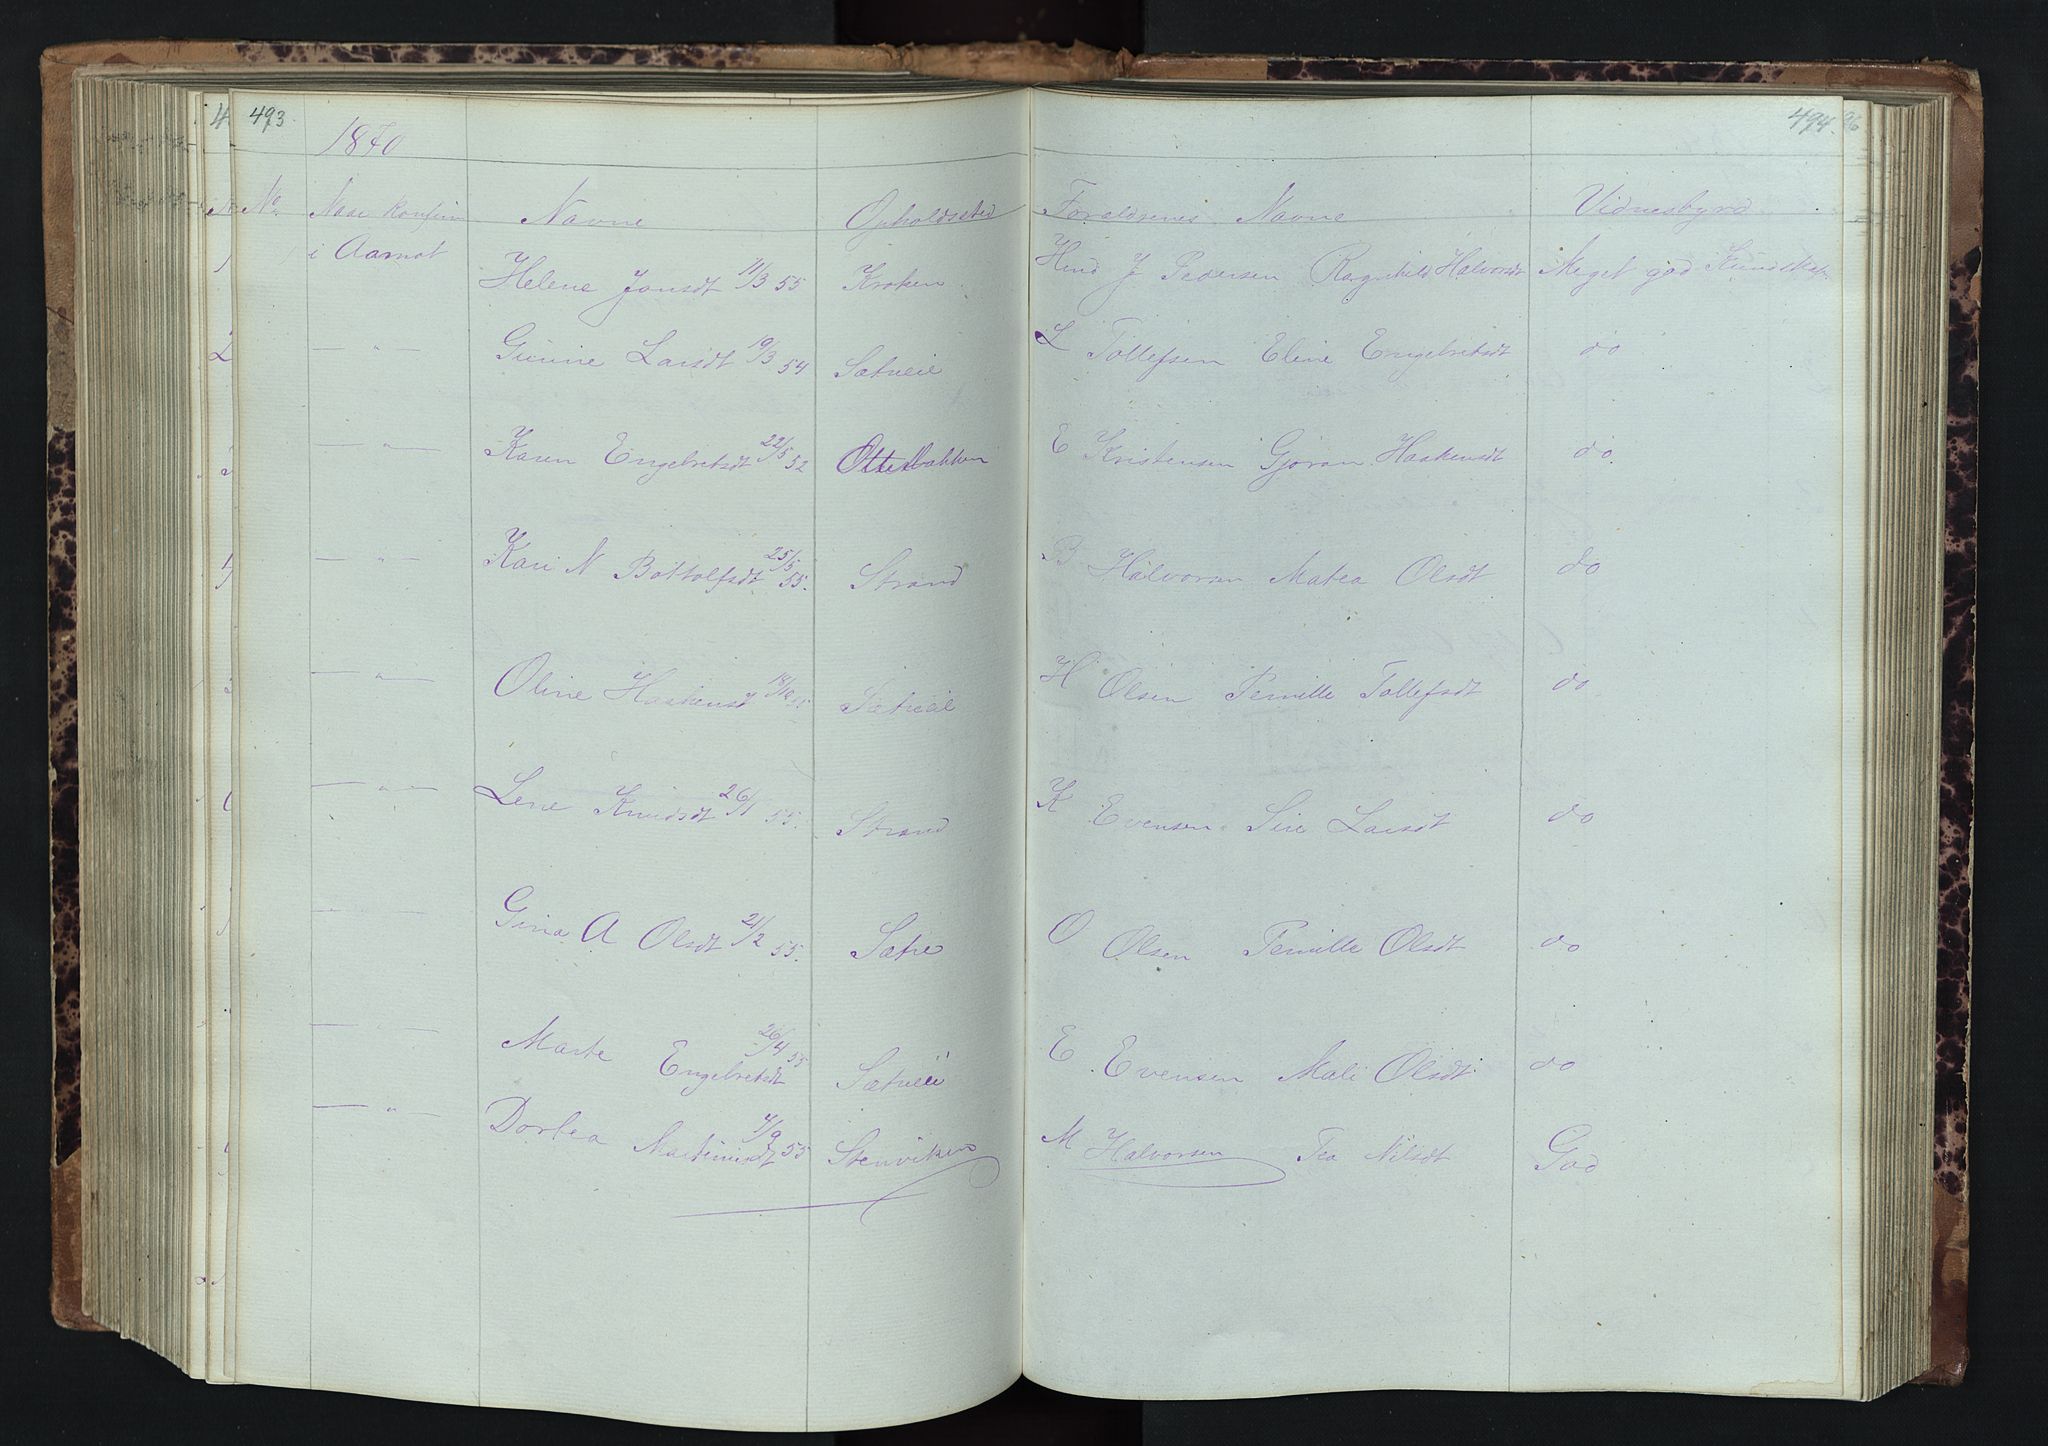 493
494.
1870
No. Naar Konfirm Navne Opholdssted Forældrenes Navne Vidnesbyrd
i Aamot Helene Jonsdt 11/3 55 Kroken Hmd J Pedersen Ragnhild Halvorsdt Meget god Kundskab
— " — Gunine Larsdt 19/3 54 Sætreeie L Tollefsen Eline Engebretsdt do
— " — Karen Engebretsdt 22/5 52 Ottesbakken E Kristensen Gjøran Haakensdt do
— " — Kari N Bottolfsdt 25/5 55. Strand B Halvorsen Matea Olsdt do
— " — Oline Haakensd 18/10 55 Sætreeie H Olsen Pernille Tollefsdt do
— " — Lene Knudsdt 26/1 55. Strand K Evensen Siri Larsdt do
— " — Gina A Olsdt 21/2 55. Sætre O Olsen Pernille Olsdt do
— " — Marte Engebretsdt 26/4 55 Sætreeie E Evensen Mali Olsdt do
— " — Dortea Martinusdt 7/9 55 Stenviken M Halvorsen Tea Nilsdt God